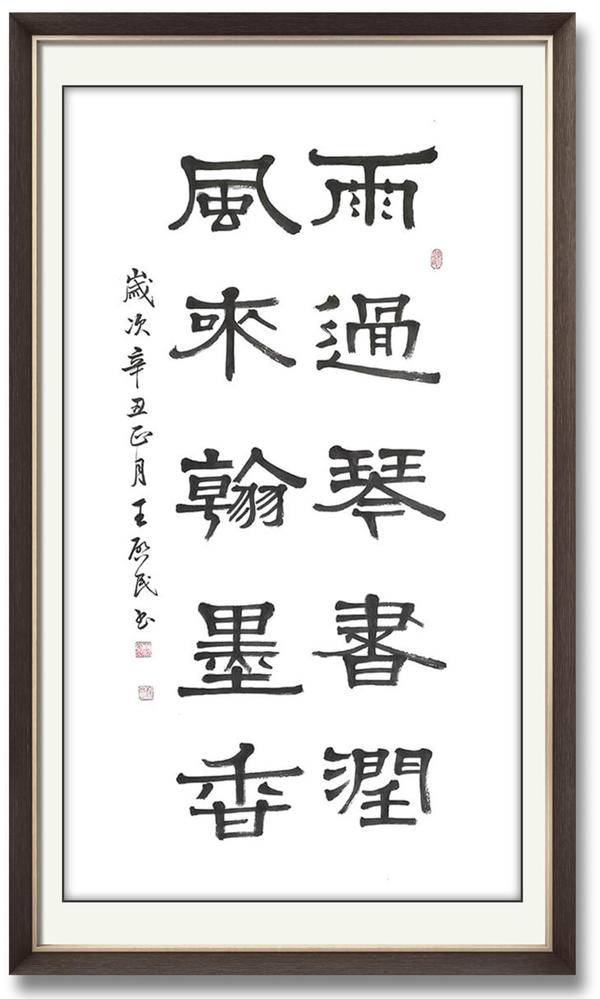 雨過琴書潤
風來翰墨香
歲次辛丑正月王啟民書